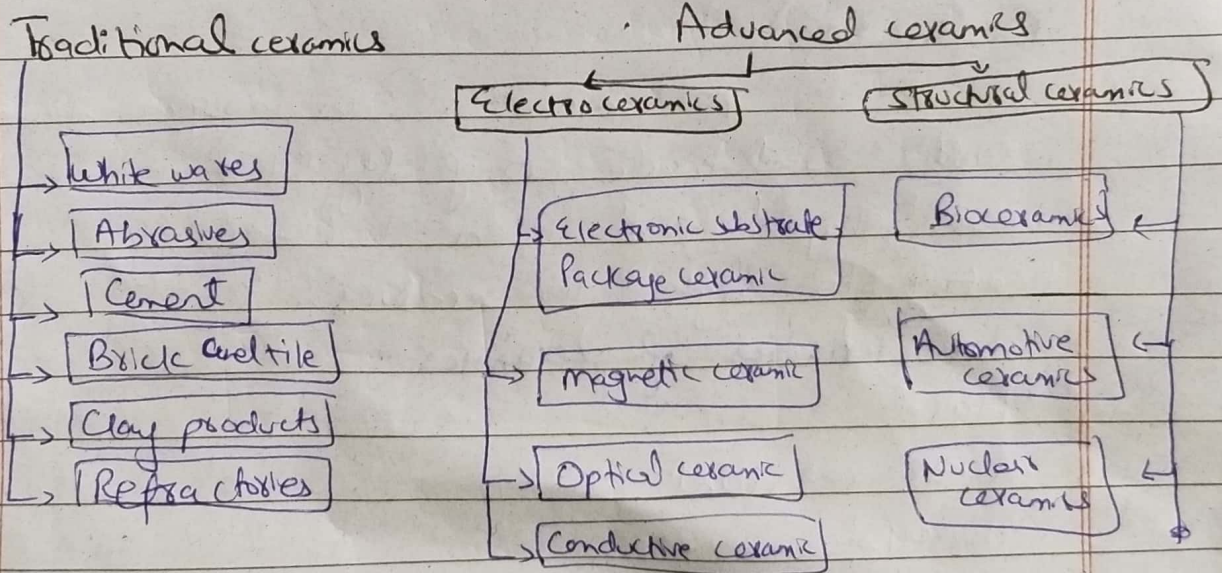 Traditional ceramics
White wares
Abrasives
Cement
Brick and tile
Clay products
Refractories
Advanced ceramics
Electroceramics
Electronic substrate
Package ceramic
magnetic ceramic
Optical ceramic
Conductive ceramic
Structural ceramics
Bioceramics
Automotive
ceramics
Nuclear
ceramics